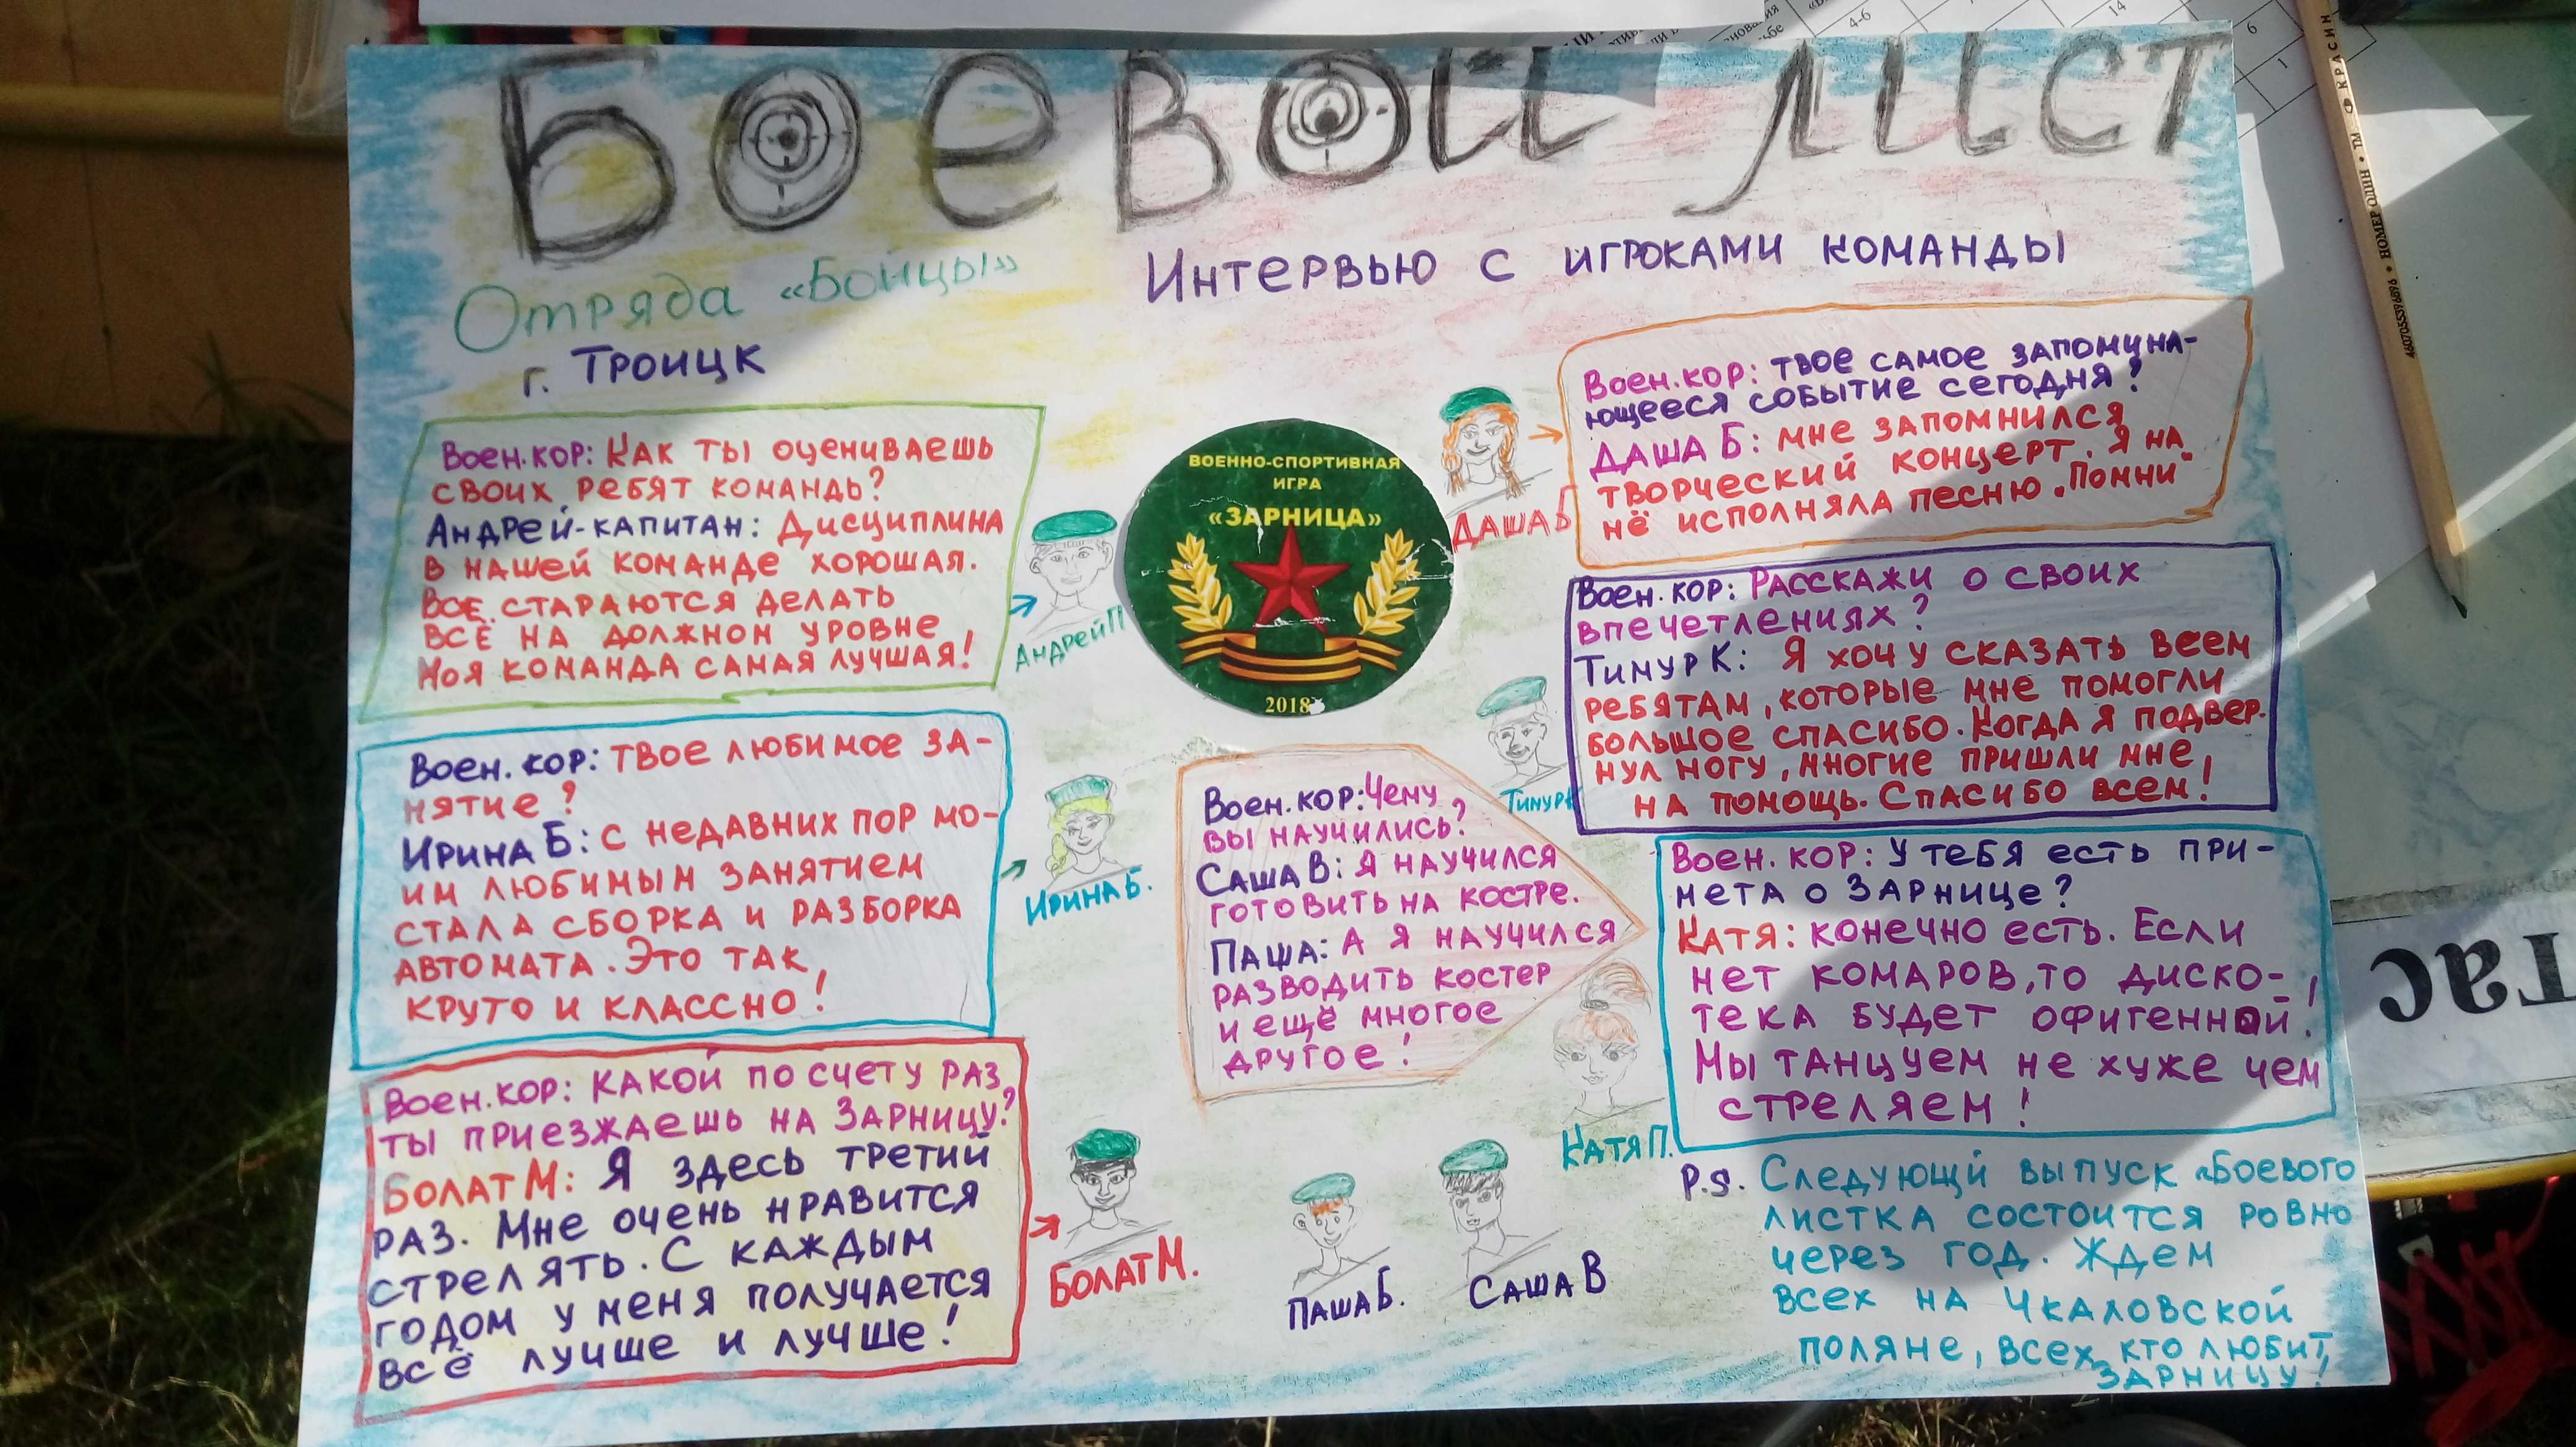 Боевой лист
Отряда «Бойцы»
г. Троицк
Интервью с игроками команды
Воен.кор: Как ты оцениваешь
своих ребят команды?
Андрей-капитан: Дисциплина
в нашей команде хорошая.
Все стараются делать
всё на должном уровне
Моя команда самая лучшая!
Андрей П
Воен.кор: твое любимое за-
нятие?
Ирина Б: с недавних пор мо-
им любимым занятием
стала сборка и разборка
автомата. Это так
круто и классно!
Ирина Б.
Воен.кор: какой по счету раз
ты приезжаешь на Зарницу?
Болат М: Я здесь третий
раз. Мне очень нравится
стрелять. С каждым
годом у меня получается
всё лучше и лучше!
Болат М.
ВОЕННО-СПОРТИВНАЯ
ИГРА
«ЗАРНИЦА»
2018
Воен.кор: Чему
вы научились?
Саша В: Я научился
готовить на костре.
Паша: А я научился
разводить костер
и ещё многое
другое!
Паша Б.
Саша В
Воен.кор: твое самое запомина-
ющееся событие сегодня?
Даша Б: мне запомнился
творческий концерт. Я на
нё исполняла песню „Помни"
Даша Б
Воен.кор: Расскажи о своих
впечетлениях?
Тимур К: Я хочу сказать всем
ребятам, которые мне помогли
большое спасибо. Когда я подвер-
нул ногу, многие пришли мне
на помощь. Спасибо всем!
Тимур К
Воен.кор: У тебя есть при-
мета о Зарнице?
Катя: конечно есть. Если
нет комаров, то диско-
тека будет офигенной!
Мы танцуем не хуже чем
стреляем!
Катя П.
P.S. Следующй выпуск «Боевого
листка состоится ровно
через год. Ждем
всех на Чкаловской
поляне, всех кто любит
Зарницу!
4-6
14
6
1
КРАСИН
ТМ • НОМЕР ОДИН •
тас